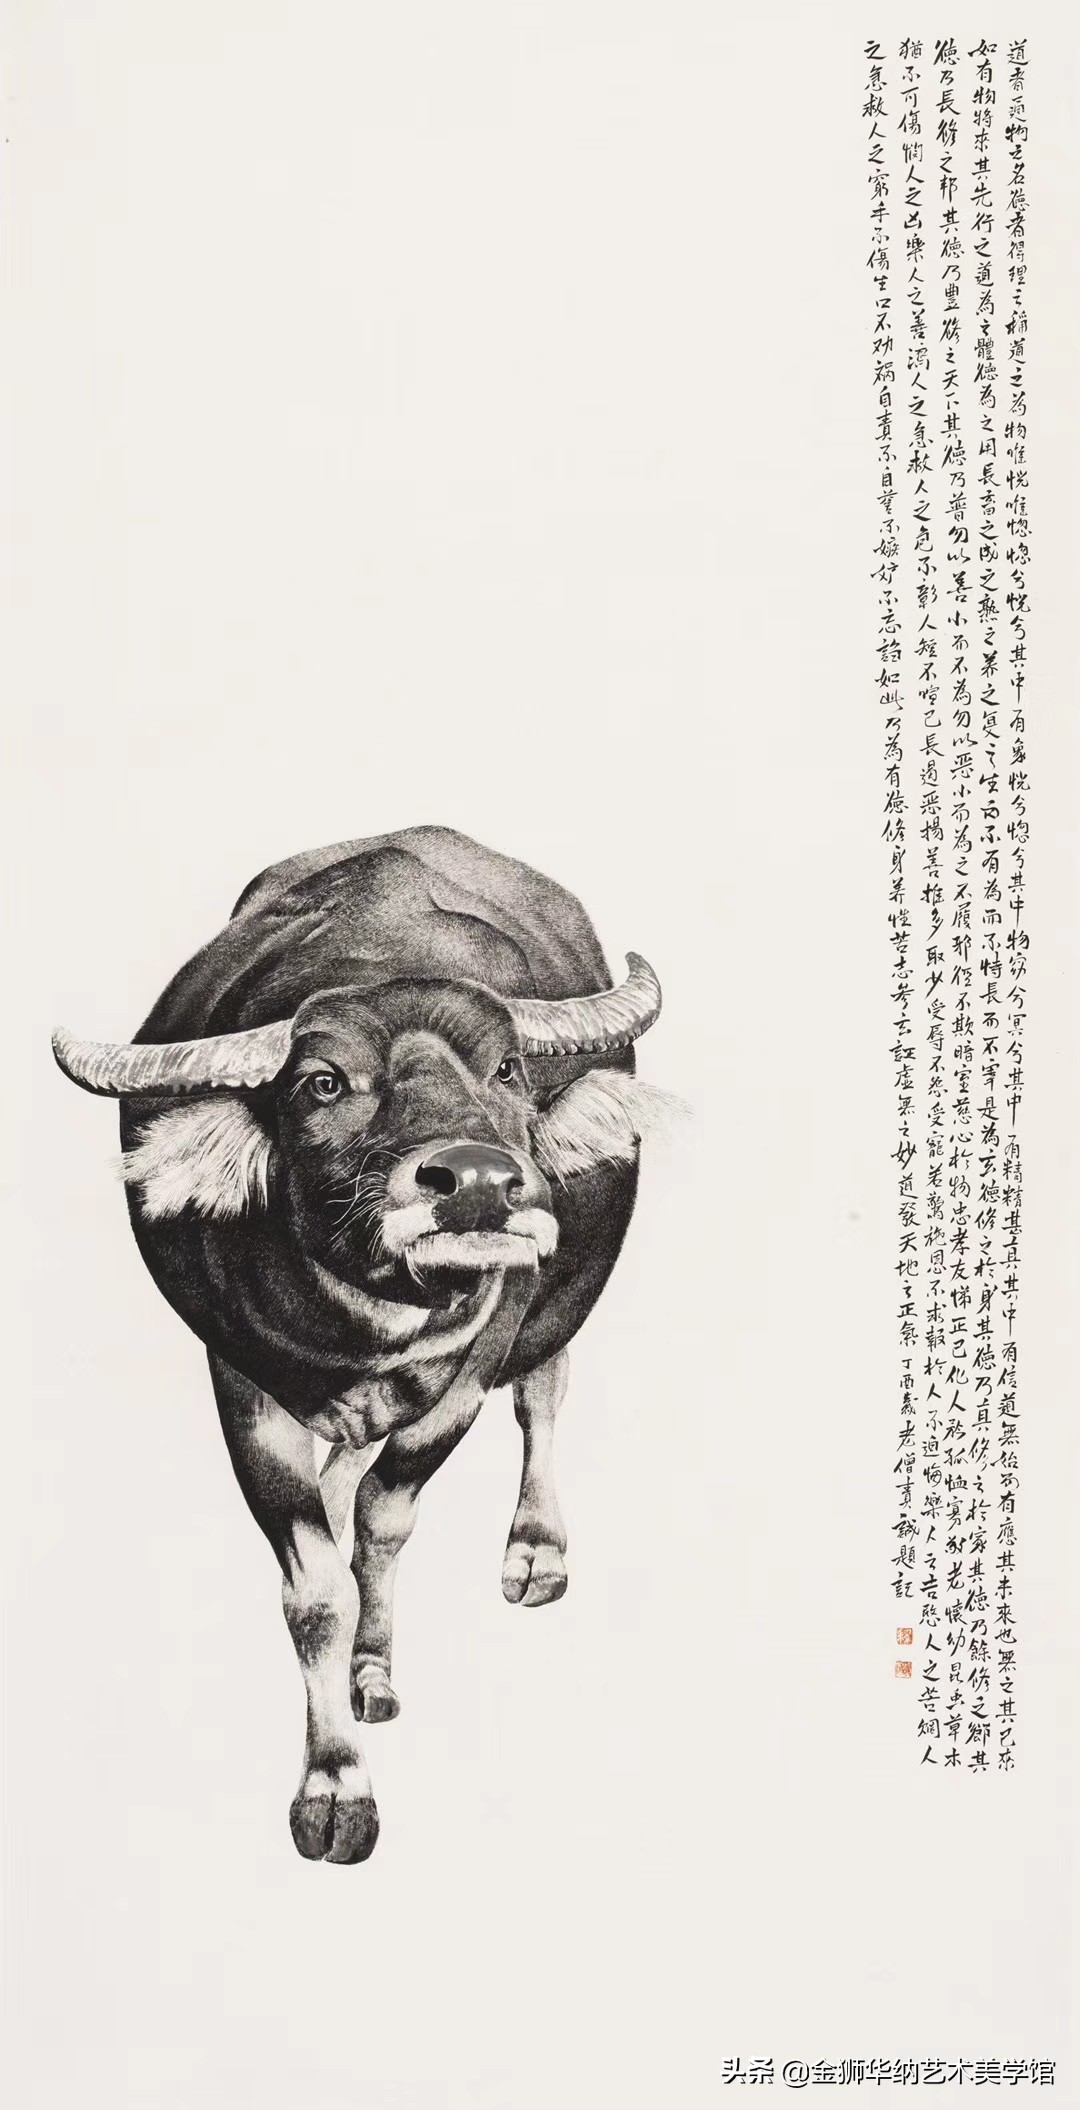 道者通物之名德者得理之稱道之為物唯恍唯惚惚兮恍兮其中有象恍兮惚兮其中物窈兮冥兮其中有精精甚真其中有信道無始而有應其未來也無之其已來
如有物將來其先行之道為之體德為之用長畜之成之熟之养之复之生而不有為而不恃長而不宰是為玄德修之於身其德乃真修之於家其德乃餘修之鄉其
德乃長修之邦其德乃豐修之天下其德乃普勿以善小而不為勿以惡小而為之不履邪徑不欺暗室慈心於物忠孝友悌正己化人矜孤恤寡敬老懷幼昆虫草木
猶不可傷憫人之凶樂人之善濟人之急救人之危不彰人短不喧己長遏惡揚善推多取少受辱不怨受寵若驚施恩不求報於人不追悔樂人之吉愍人之苦賙人
之急救人之窮手不傷生口不劝禍自責不自誉不嫉妒不忘諂如此乃為有德修身养性苦志参玄証虛無之妙道發天地之正氣 丁酉歲老僧責誠題記
头条 @金狮华纳艺术美学馆